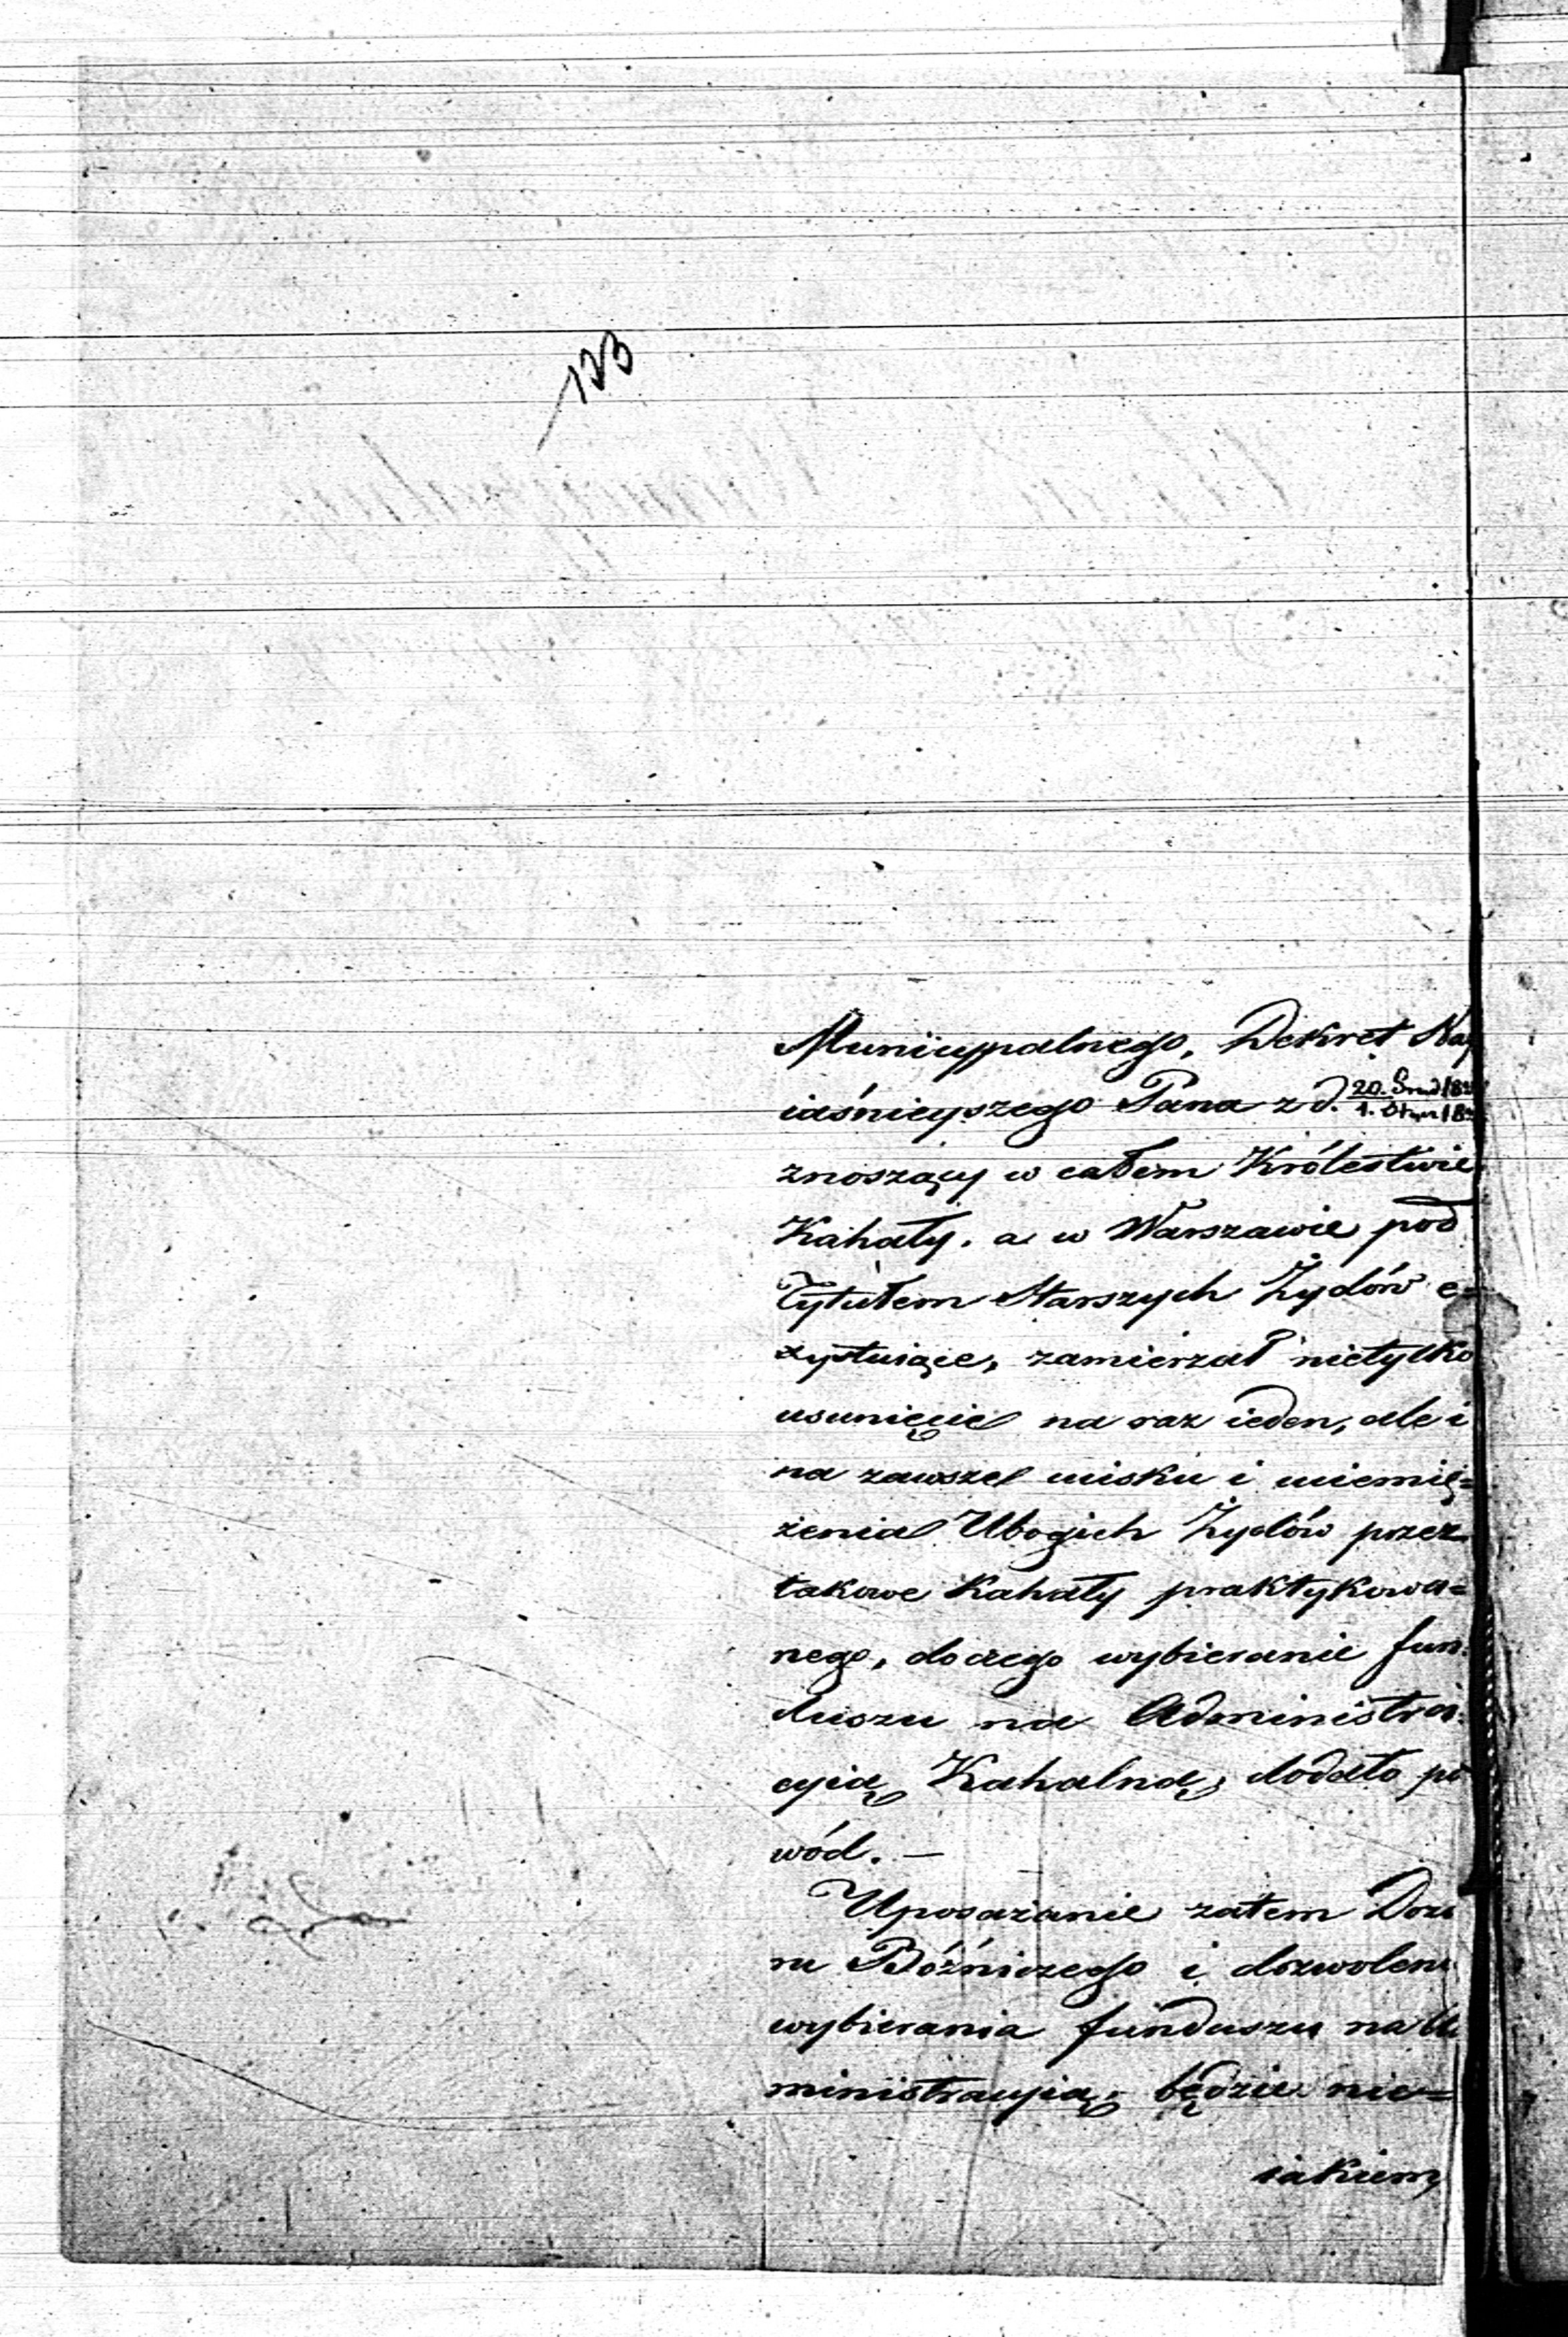 123
Municypalnego, Dekret Nay
iaśnieyszego Pana z d. 20. Grud 18
1. Stycz 18
znoszący w całem Królestwie
Kahały, a w Warszawie pod
Tytułem Starszych Żydów e-
xystuiące, zamierzał nietylko
usunięcie na raz ieden, ale i
na zawsze ucisku i uciemię=
żenia Ubogich Żydów przez
takowe Kahały praktykowa=
nego, do czego wybieranie fun-
duszu na Administra-
cyią Kahalną, dodało po
wód. —
Uposażanie zatem Dozo
ru Bóżniczego i dozwoleni
wybierania funduszu na A
ministracyią, będzie nie=
iakiem